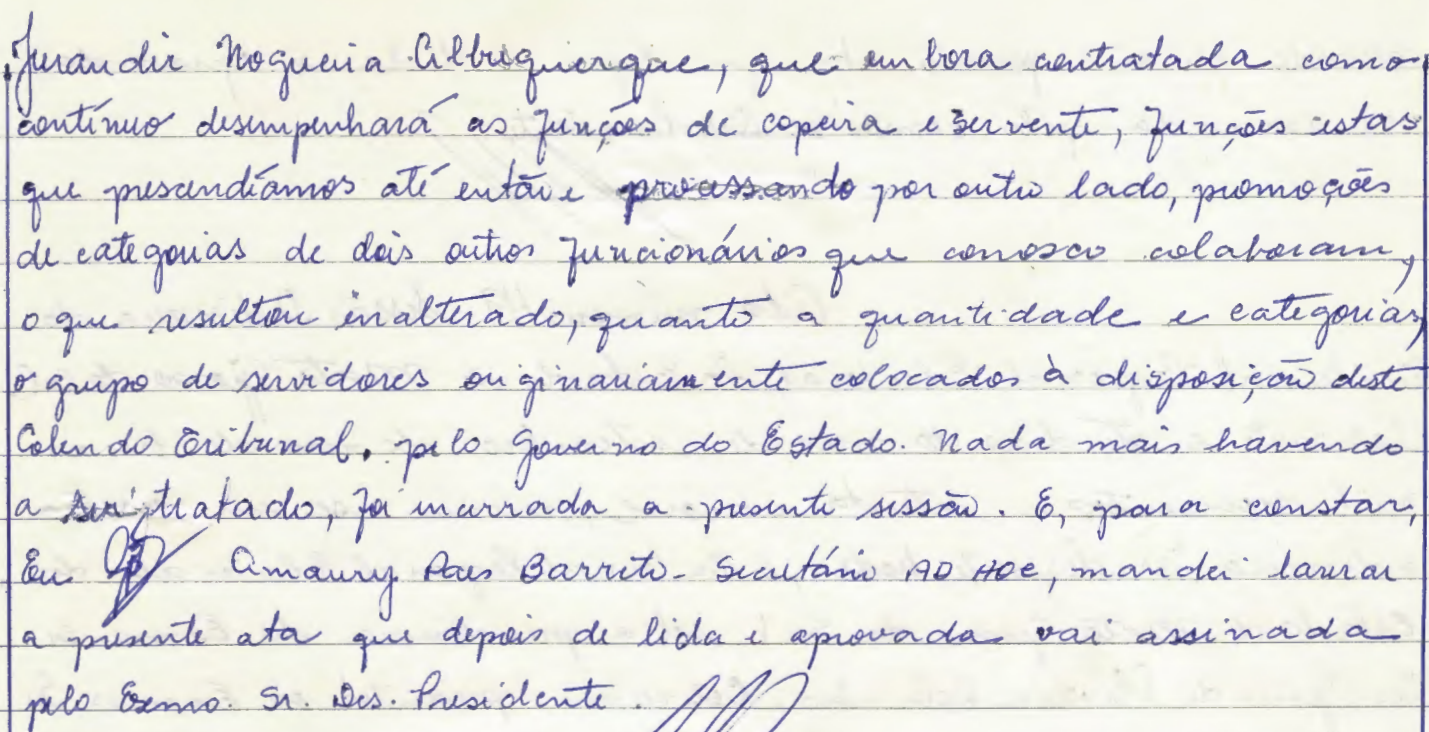 Jurandir Nogueira Albuquerque, que embora contratada como
contínuo desempenhará as funções de copeira e servente, funções estas
que prescendíamos até então e processando por outro lado, promoções
de categorias de dois outros funcionários que conosco colaboram,
o que resultou inalterado, quanto a quantidade e categorias,
o grupo de servidores originariamente colocados à disposição deste
Colendo Tribunal, pelo Governo do Estado. Nada mais havendo
a ser tratado, foi encerrada a presente sessão. E, para constar,
Eu Amaury Paes Barreto - Secretário AD HOC, mandei lavrar
a presente ata que depois de lida e aprovada vai assinada
pelo Exmo. Sr. Des. Presidente.